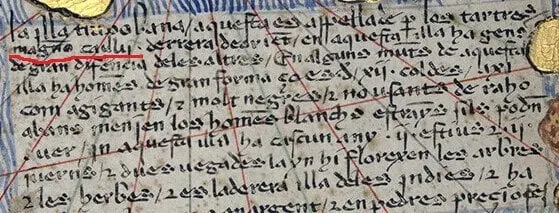 la illa trapobana, aquesta es appellada p los tartres
magno caulij derrera de orient, en aquesta illa ha gens
de gran diferencia deles altres, En alguns munts de aquesta
illa ha homens de gran forma co es de xij coldes
com agigants, e molt negres e no usants de raho
abans menien los homes blanchs estrayns sils poden
auer, en aquesta illa ha cascun any ij estius e ij
iuerns, e dues vegades lany hi florexen los arbres
e les herbes, e es la derera illa deles indies, e ha
argent, e en pedres precioses